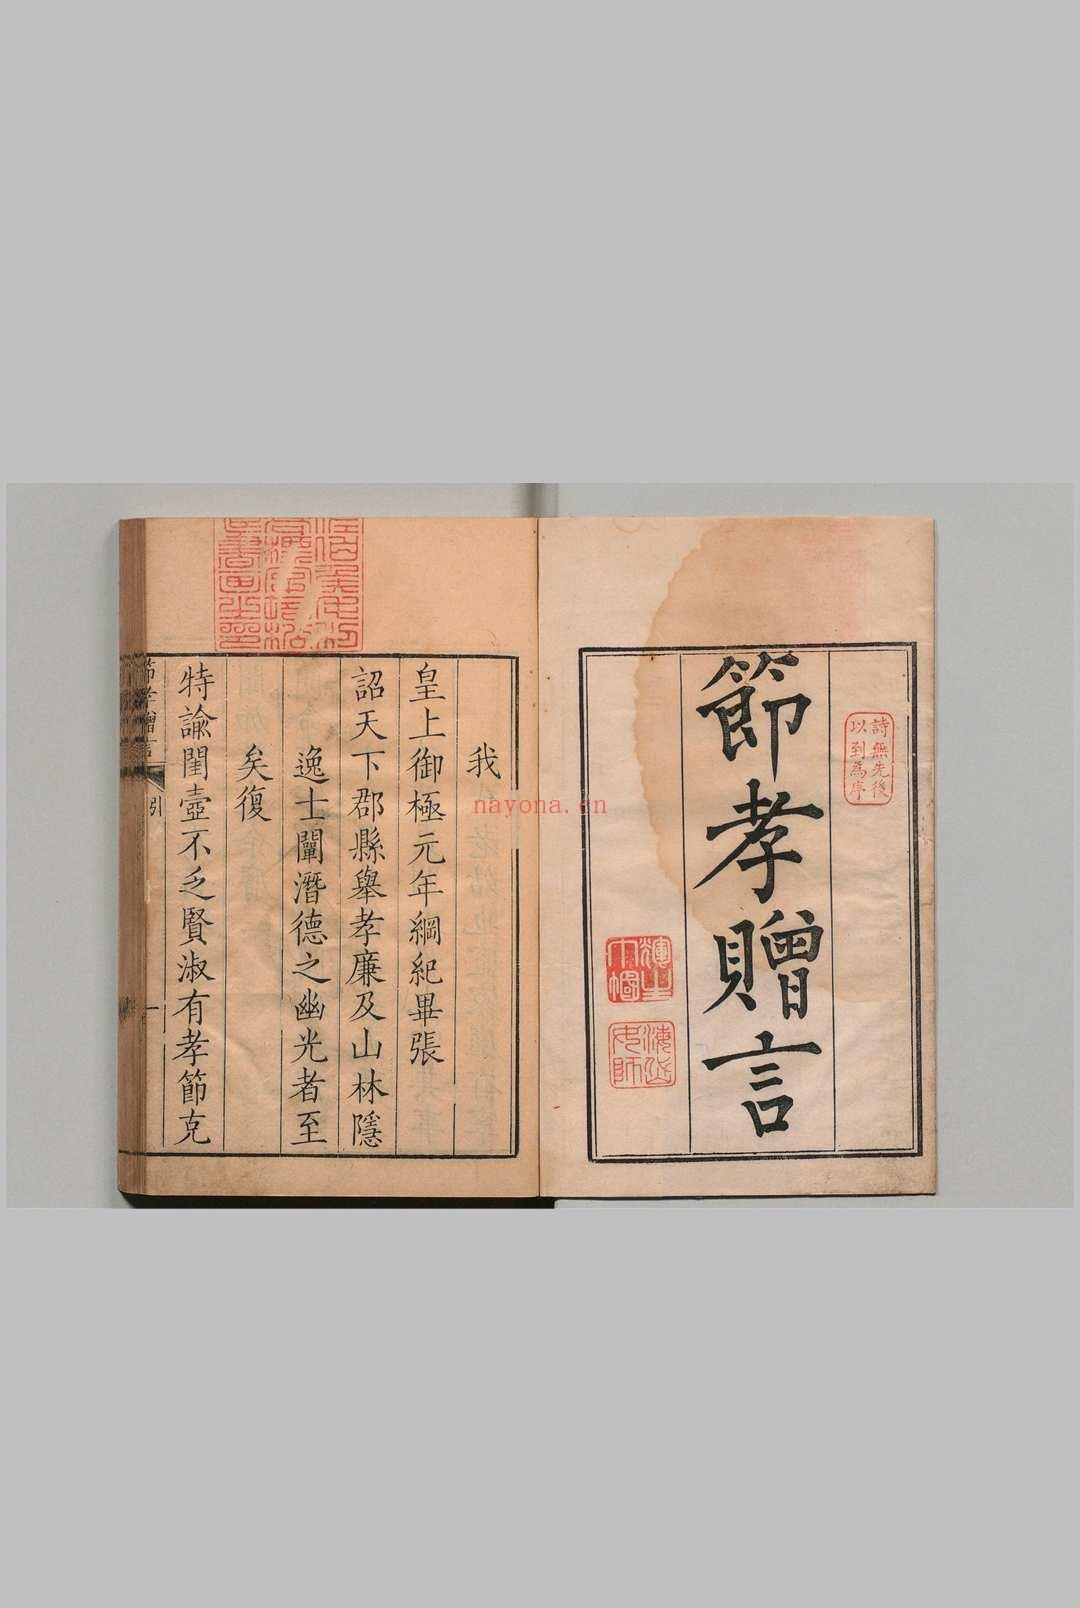 節孝贈言
詩無先後
以到為序
我
皇上御極元年綱紀畢張
詔天下郡縣舉孝廉及山林隱
逸士闡潛德之幽光者至
矣復
特諭閨壼不乏賢淑有孝節克
節孝贈言
引
一
nayona.cn